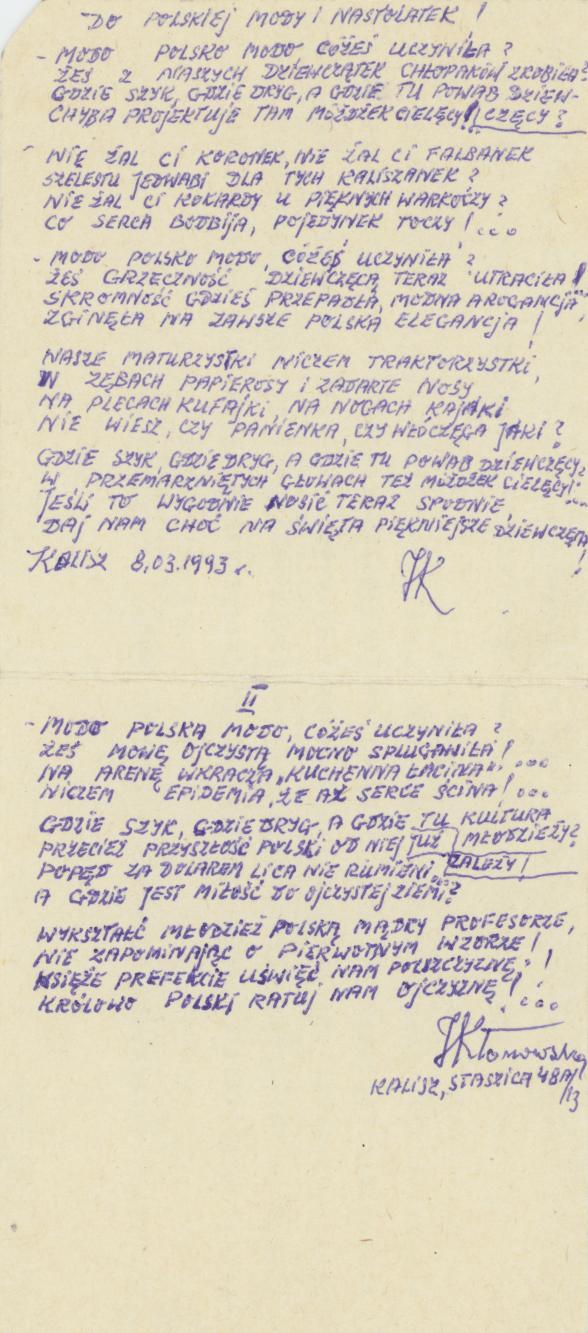 DO POLSKIEJ MODY I NASTOLATEK!
- MODO POLSKO MODO CÓŻEŚ UCZYNIŁA?
ŻEŚ Z NASZYCH DZIEWCZĄTEK CHŁOPAKÓW ZROBIŁA?
GDZIE SZYK, GDZIE DRYG, A GDZIE TU POWAB DZIEW-
CHYBA PROJEKTUJE TAM MÓŻDŻEK CIELĘCY! CZĘCY?
NIE ŻAL CI KORONEK, NIE ŻAL CI FALBANEK
SZELESTU JEDWABI DLA TYCH KALISZANEK?
NIE ŻAL CI KOKARDY U PIĘKNYCH WARKOCZY?
CO SERCA PODBIJA, POJEDYNEK TOCZY!...
- MODO POLSKO MODO, CÓŻEŚ UCZYNIŁA?
ŻEŚ GRZECZNOŚĆ DZIEWCZĘCĄ TERAZ UTRACIŁA!
SKROMNOŚĆ GDZIEŚ PRZEPADŁA, MODNA AROGANCJA
ZGINĘŁA NA ZAWSZE POLSKA ELEGANCJA!
NASZE MATURZYSTKI NICZEM TRAKTORZYSTKI,
W ZĘBACH PAPIEROSY I ZADARTE NOSY
NA PLECACH KUFAJKI, NA NOGACH KAJAKI
NIE WIESZ, CZY PANIENKA, CZY WŁÓCZĘGA JAKI?
GDZIE SZYK, GDZIE DRYG, A GDZIE TU POWAB DZIEWCZĘCY?
W PRZEMARZNIĘTYCH GŁOWACH TEŻ MÓŻDŻEK CIELĘCY!...
JEŚLI TO WYGODNIE NOSIĆ TERAZ SPODNIE,
DAJ NAM CHOĆ NA ŚWIĘTA PIĘKNIEJSZE DZIEWCZĘTA
!
KALISZ 8.03.1993 r.
JK
II
- MODO POLSKA MODO, CÓŻEŚ UCZYNIŁA?
ŻEŚ MOWĘ OJCZYSTĄ MOCNO SPLUGAWIŁA!
NA ARENĘ WKRACZA „KUCHENNA ŁACINA"...
NICZEM EPIDEMIA, ŻE AŻ SERCE ŚCINA!...
GDZIE SZYK, GDZIE DRYG, A GDZIE TU KULTURA
PRZECIEŻ PRZYSZŁOŚĆ POLSKI OD NIEJ JUŻ MŁODZIEŻY?
POPĘD ZA DOLAREM LICA NIE RUMIENI... ZALEŻY!
A GDZIE JEST MIŁOŚĆ DO OJCZYSTEJ ZIEMI?
WYKSZTAŁĆ MŁODZIEŻ POLSKĄ MĄDRY PROFESORZE,
NIE ZAPOMINAJĄC O PIERWOTNYM WZORZE!
KSIĘŻE PREFEKCIE UŚWIĘĆ NAM POLSZCZYZNĘ!
KRÓLOWO POLSKI RATUJ NAM OJCZYZNĘ!...
JKłomowska
KALISZ, STASZICA 48A/
/13